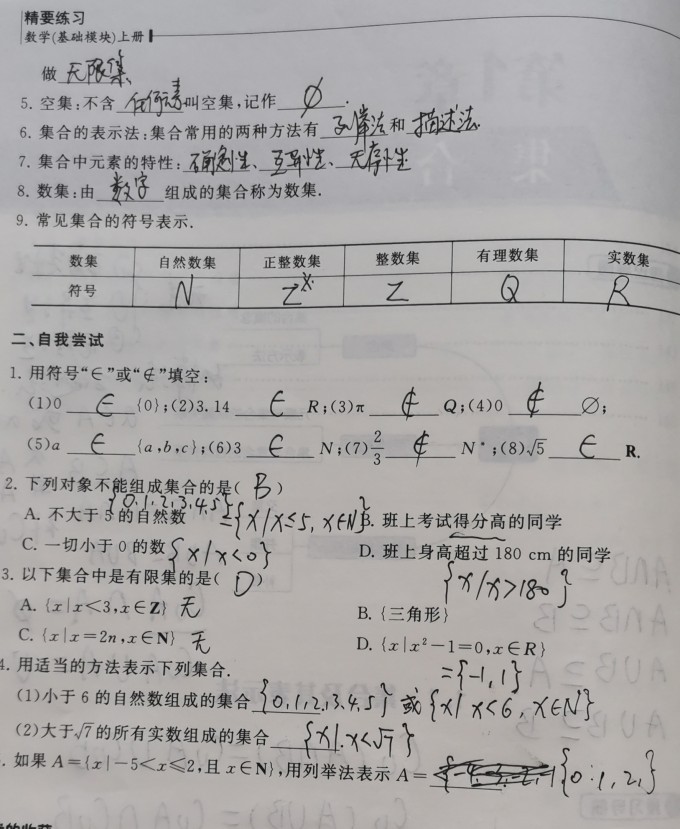 精要练习
数学(基础模块)上册
做 无限集
5. 空集:不含 任何元素 叫空集,记作 ∅.
6. 集合的表示法:集合常用的两种方法有 列举法 和 描述法.
7. 集合中元素的特性: 确定性、互异性、无序性
8. 数集:由 数字 组成的集合称为数集.
9. 常见集合的符号表示.
数集 自然数集 正整数集 整数集 有理数集 实数集
符号 N Z* Z Q R
二、自我尝试
1. 用符号“∈”或“∉”填空:
(1)0 ∈ {0};(2)3.14 ∈ R;(3)π ∉ Q;(4)0 ∉ ∅;
(5)a ∈ {a,b,c};(6)3 ∈ N;(7)2/3 ∉ N*;(8)√5 ∈ R.
2. 下列对象不能组成集合的是( B )
{0,1,2,3,4,5}
A. 不大于5的自然数 ={x|x≤5, x∈N} B. 班上考试得分高的同学
C. 一切小于0的数 {x|x<0} D. 班上身高超过180 cm的同学
{x|x>180}
3. 以下集合中是有限集的是( D )
A. {x|x<3,x∈Z} 无 B. {三角形}
C. {x|x=2n,x∈N} 无 D. {x|x²-1=0,x∈R}
={-1,1}
4. 用适当的方法表示下列集合.
(1)小于6的自然数组成的集合 {0,1,2,3,4,5} 或 {x|x<6, x∈N}
(2)大于√7的所有实数组成的集合 {x|x<√7}
. 如果A={x|-5<x≤2,且x∈N},用列举法表示A= {0,1,2,}
的收获